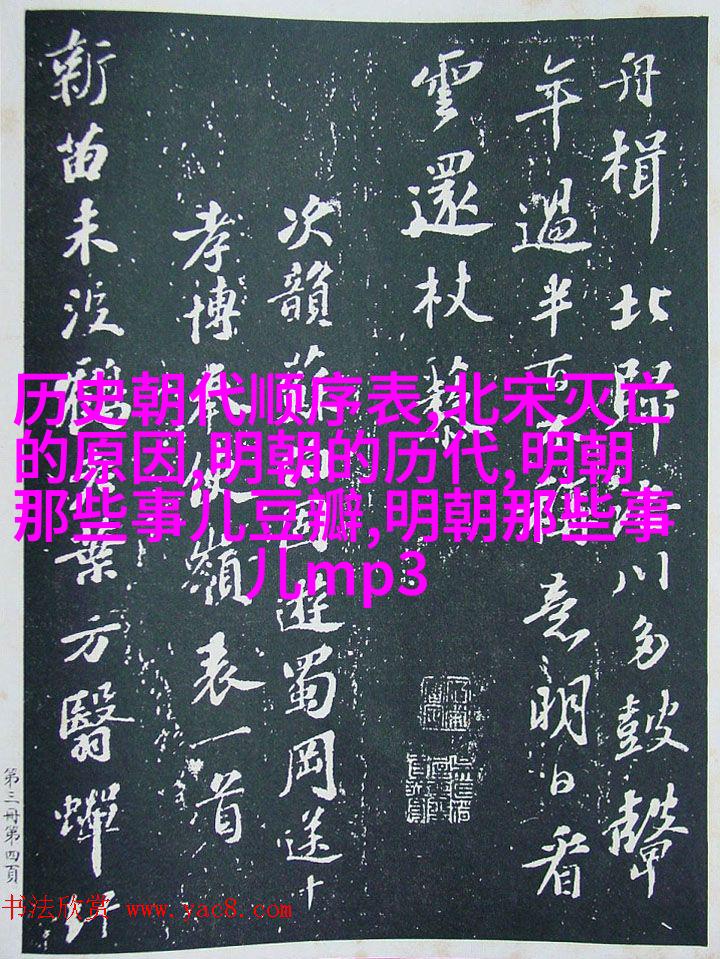 舟楫北歸川多鼓聲
年過半百不稱意明日看
雲還杖藜
次韻蘇伯固遊蜀岡送
孝博奉使嶺表一首
新苗未沒鶴老葉方翳蟬
历史朝代顺序表,北宋灭亡
的原因,明朝的历代,明朝
那些事儿豆瓣,明朝那些事
儿mp3
第三册第四頁
书法欣赏 www.yac8.com